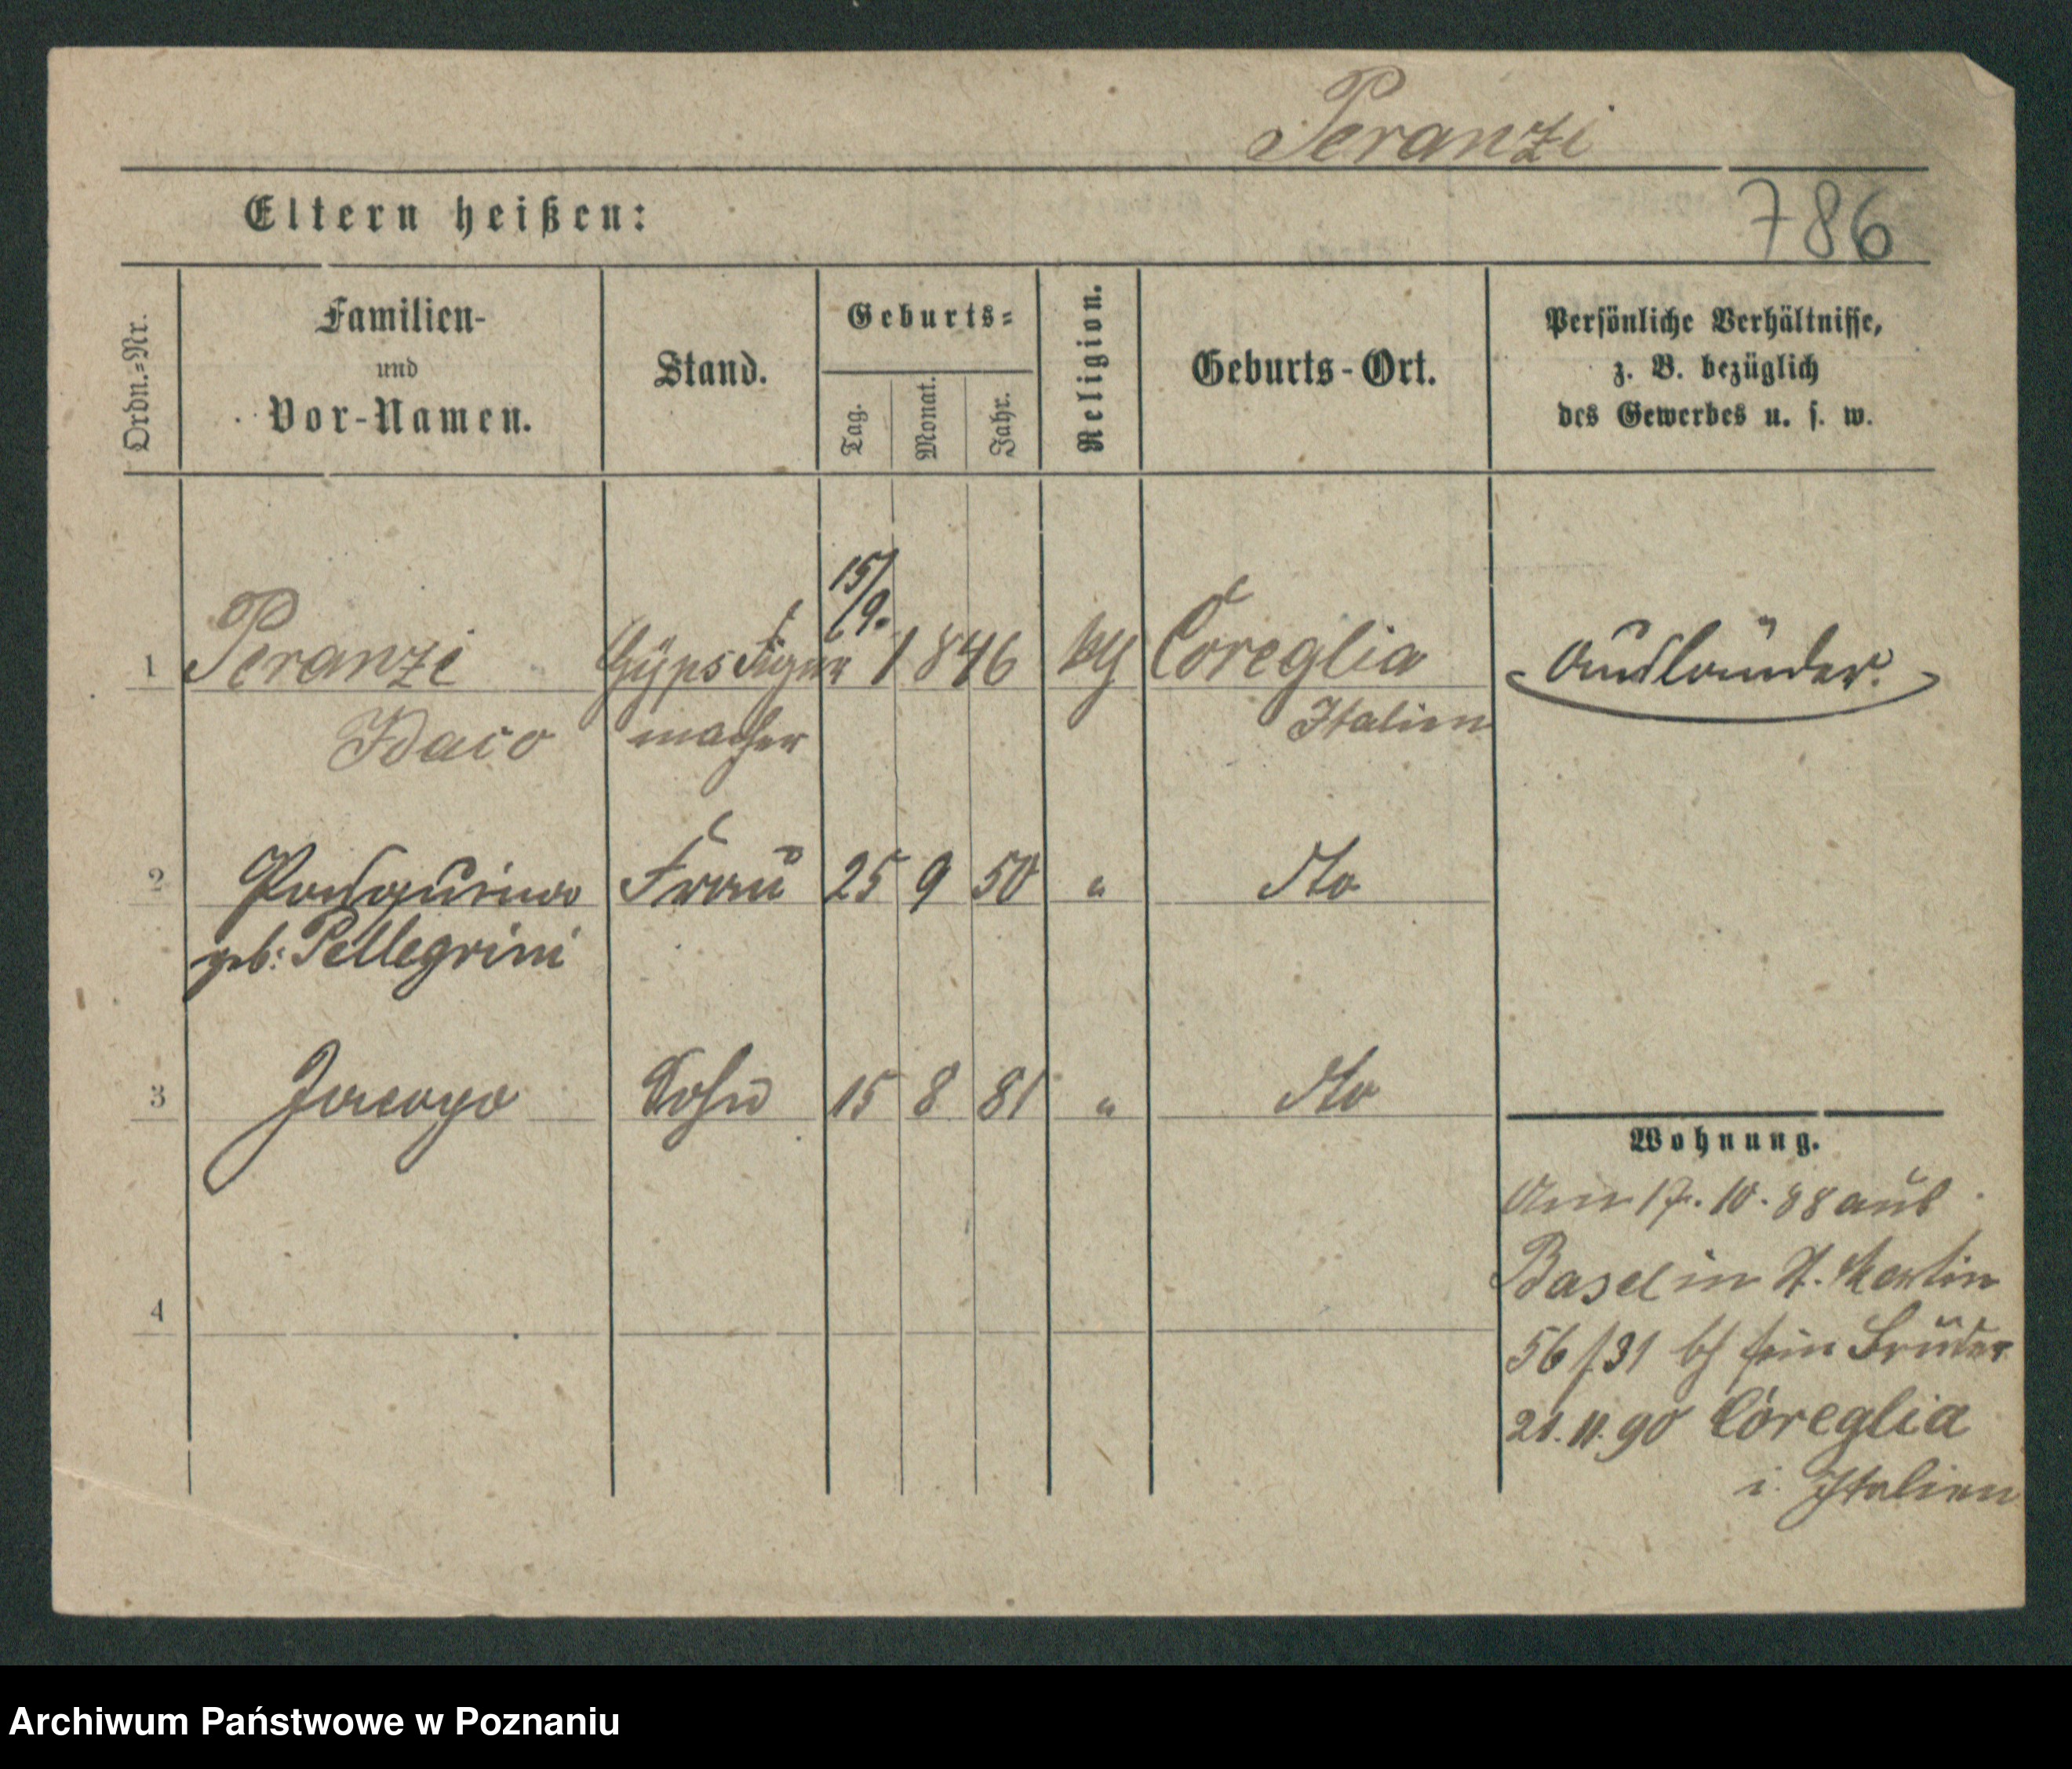 Peranzi
Eltern heißen:
786
Ordn.-Nr.
Familien-
und
Vor-Namen.
Stand.
Geburts-
Tag.
Monat.
Jahr.
Religion.
Geburts-Ort.
Persönliche Verhältnisse,
z. B. bezüglich
des Gewerbes u. s. w.
15/9.
1 Peranzi Gypsfigur 1846 Coreglia Ausländer.
macher Italien
2 Pasquina Frau 25 9 50 " dto
geb: Pellegrini
3 Jacopo Sohn 15 8 81 " dto
Wohnung.
Am 17. 10. 88 aus
Basel in St. Martin
56 /31 bei sein Bruder
21. 11. 90 Coreglia
i. Italien
4
Archiwum Państwowe w Poznaniu